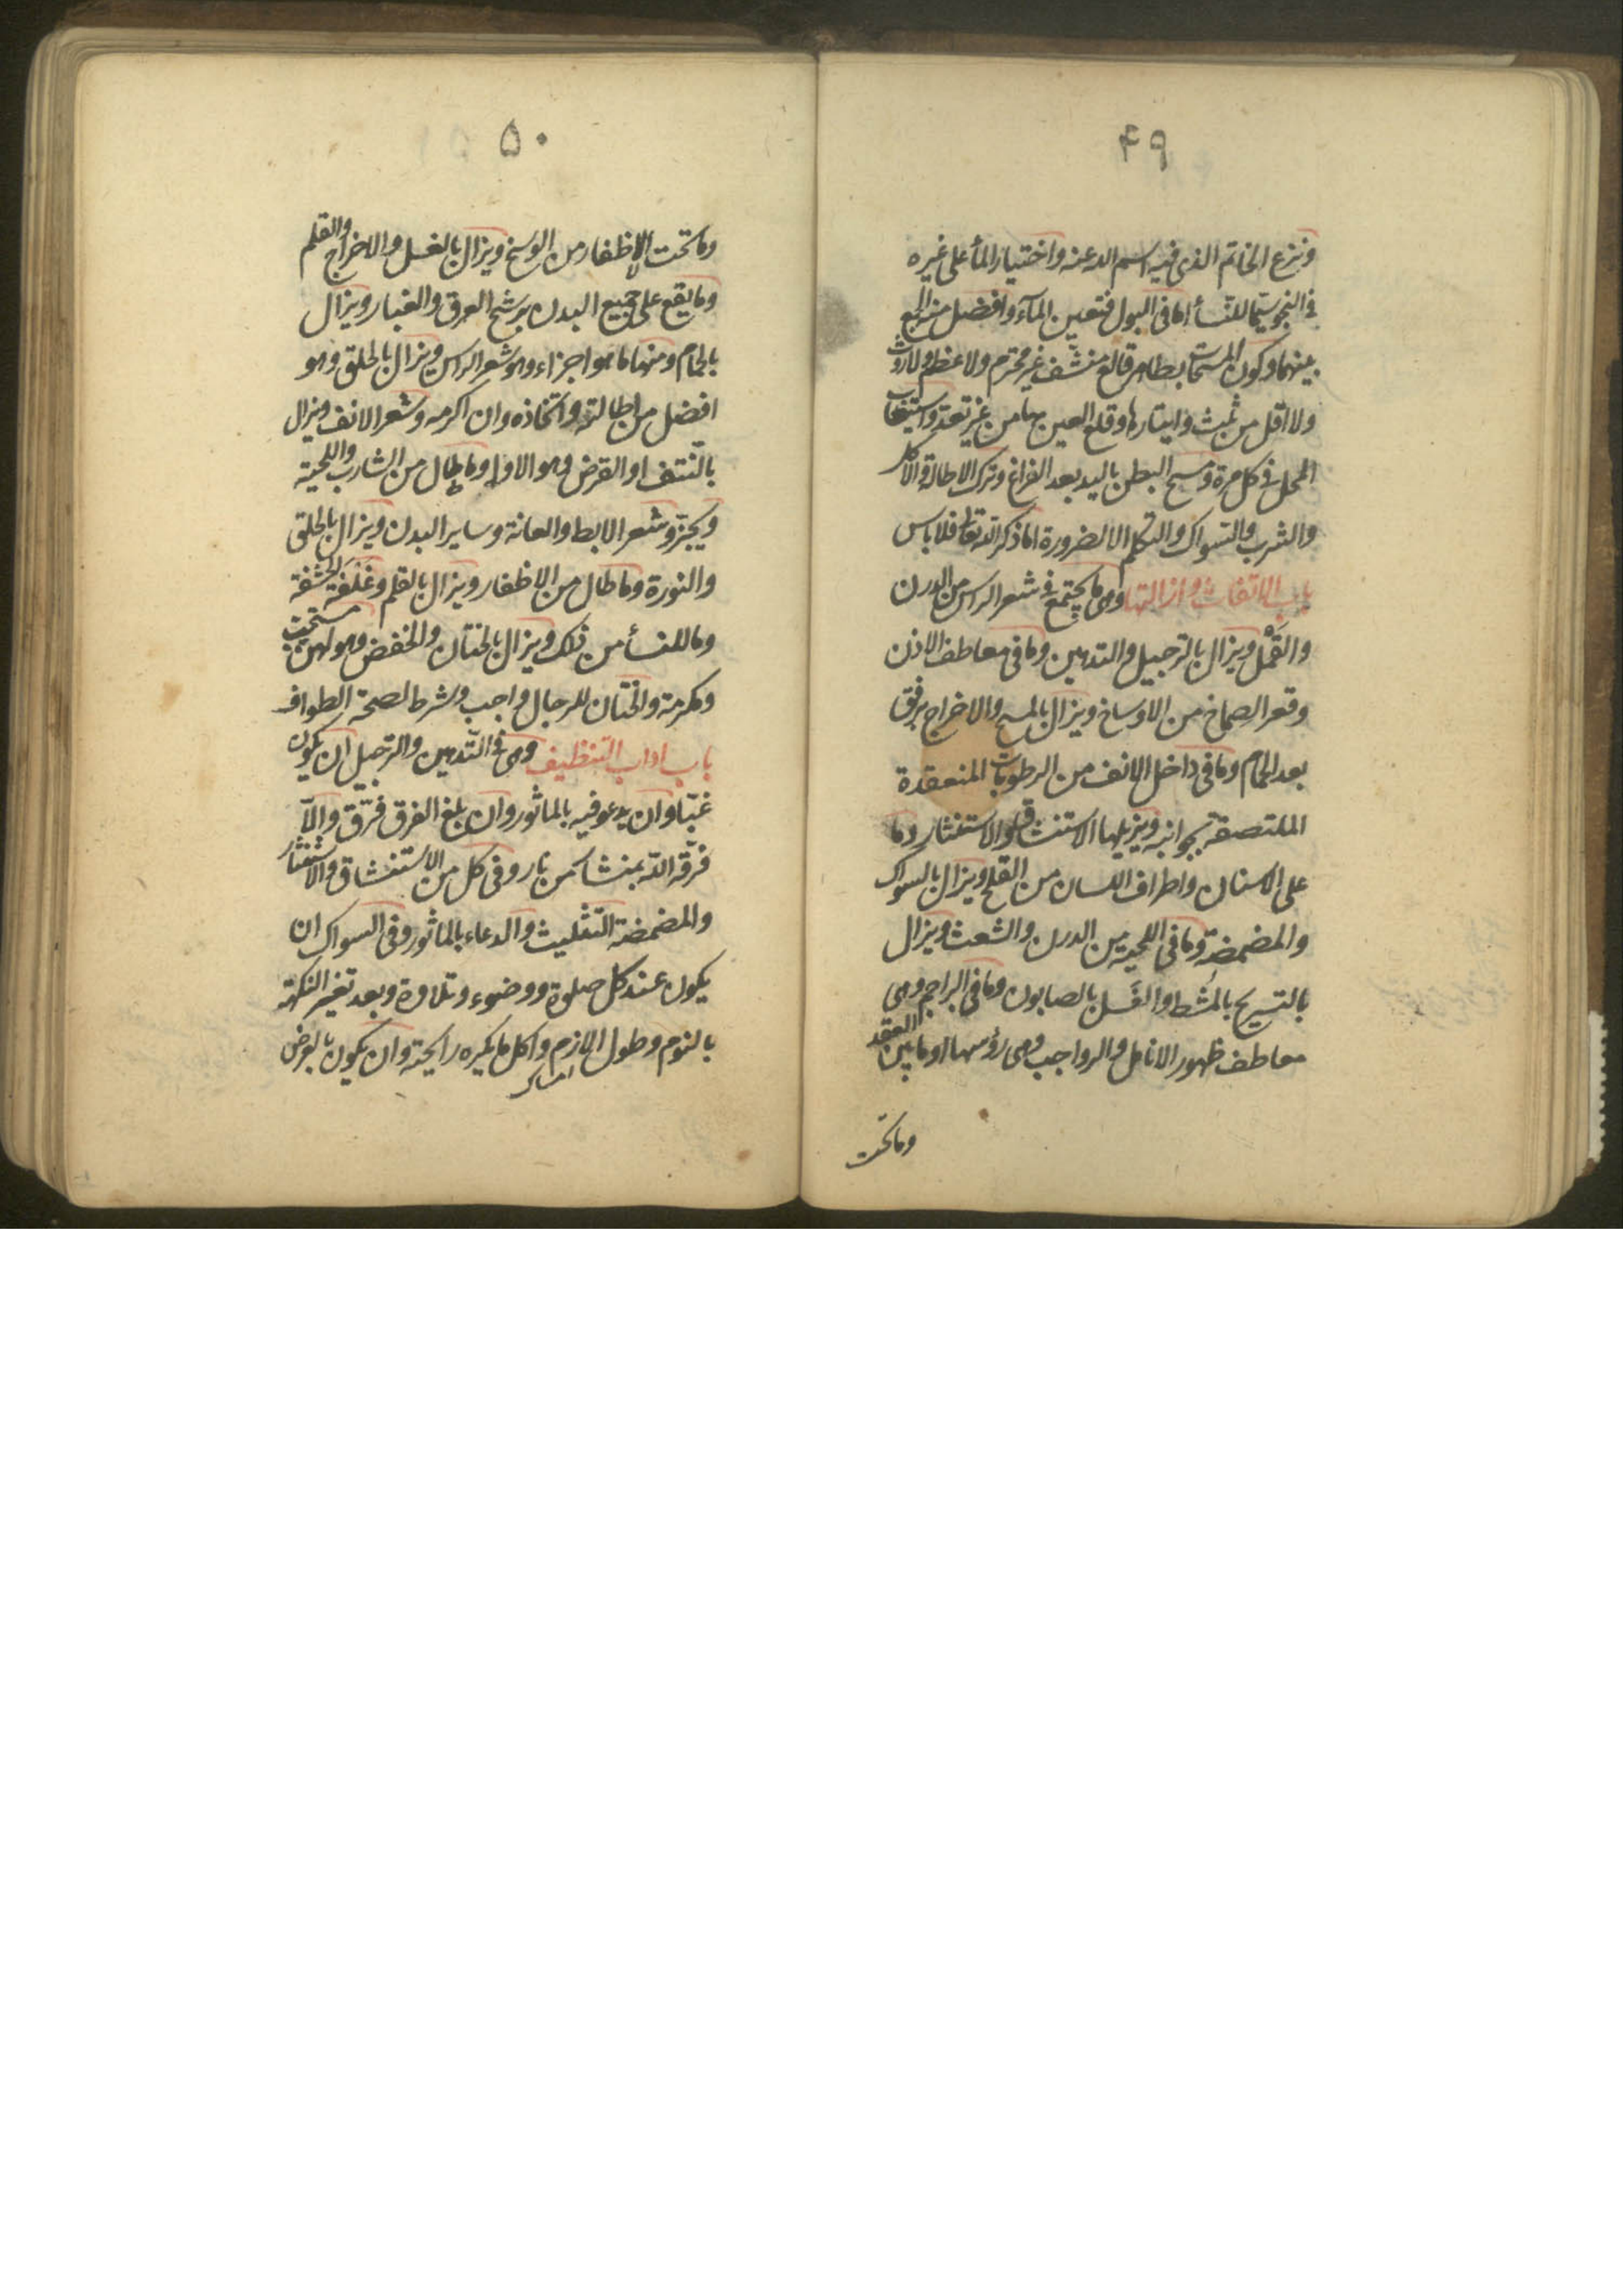 ۴۹
ونزع الخاتم الذى فيه اسم الله عنه واختيار المأ على غيره
فى النجو سيّما للنسأ اما فى البول فتعين المآء وافضل منه الجمع
بينهما وكون المستنجا به طاهر قالع منشّف غير محترم ولا عظم ولا روث
ولا اقل من ثلث وايتارها وقلع العين بها من غير تعد واستيعاب
المحل فى كل مرة ومسح البطن باليد بعد الفراغ وترك الاطالة والاكل
والشرب والتسواك والتكلم الا لضرورة اما ذكر الله تعالى فلا باس
باب الاتفاث وازالتها وهى ما يجتمع فى شعر الراس من الدرن
والقَمْل ويزال بالترجيل والتدهين وما فى معاطف الاذن
وقعر الصماخ من الاوساخ ويزال بالمسح والاخراج برفق
بعد الحمام وما فى داخل الانف من الرطوبات المنعقدة
الملتصقة بجوانبه ويزيلها الاستنشاق والاستنثار وما
على الاسنان واطراف اللسان من القلح ويزال بالسواك
والمضمضة وما فى اللحية من الدرن والشعث ويزال
بالتسريح بالمشط والغَسل بالصابون وما فى البراجم وهى
معاطف ظهور الانامل والرواجب وهى رؤسها او ما بين العقد
وما تحت
۵۰
وما تحت الاظفار من الوسخ ويزال بالغسل والاخراج والقلم
وما يقع على جميع البدن برشح العرق والغبار ويزال
بالحمام ومنها ما هو اجزاء وهو شعر الراس ويزال بالحلق وهو
افضل من اطالته واتخاذه وان اكرمه وشعر الانف ويزال
بالنّتف او القرض وهو الاولى وما طال من الشارب واللحية
ويجزّ وشعر الابط والعانة وساير البدن ويزال بالحلق
والنورة وما طال من الاظفار ويزال بالقلم وغلفة الحشفة
وما للنسأ من ذلك ويزال بالختان والخفض وهو لهن مستحب
ومكرمة والختان للرجال واجب وشرط لصحة الطواف
باب اداب التنظيف وهى فى التّدهين والترجيل ان يكون
غبّا وان يدعو فيه بالماثور وان بلغ الفرق فرّق والاّ
فرّقه الله بمنشار من نار وفى كل من الاستنشاق والاستنثار
والمضمضة التّثليث والدعاء بالماثور وفى السواك ان
يكون عند كل صلوة ووضوء وتلاوة وبعد تغير النكهة
بالنوم وطول الازم واكل ما يكره رايحته وان يكون بالعرض
امساك